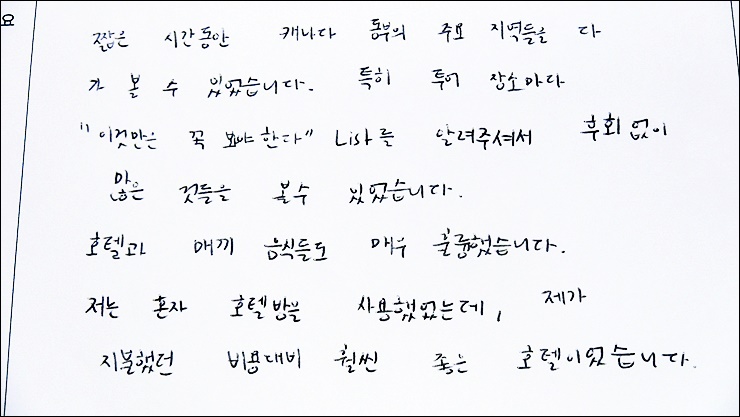 요
짧은 시간동안 캐나다 동부의 주요 지역들을 다
가 볼 수 있었습니다. 특히 투어 장소마다
"이것만은 꼭 봐야한다" List를 알려주셔서 후회없이
많은 것들을 볼수 있었습니다.
호텔과 매끼 음식들도 매우 훌륭했습니다.
저는 혼자 호텔방을 사용했었는데, 제가
지불했던 비용대비 훨씬 좋은 호텔이었습니다.